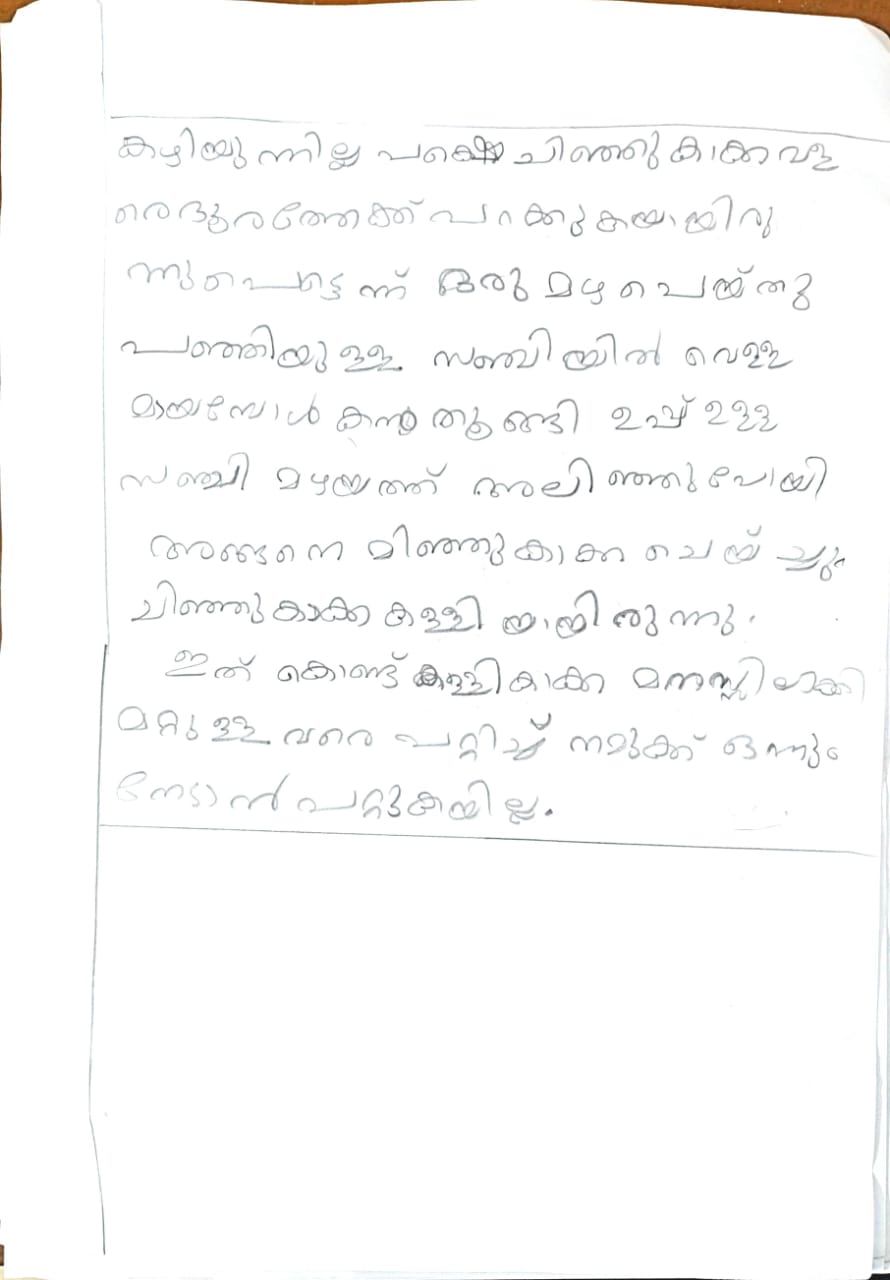 കഴിയുന്നില്ല പക്ഷെ ചിഞ്ഞുകാക്ക വള
രെ ദൂരത്തേക്ക് പറക്കുകയായിരു
ന്നു പെട്ടെന്ന് ഒരു മഴ പെയ്തു
പഞ്ഞിയുള്ള സഞ്ചിയിൽ വെള്ള
മായമ്പോൾ തൂങ്ങി ഉപ്പ് ഉള്ള
സഞ്ചി മഴയത്ത് അലിഞ്ഞുപോയി
അങ്ങനെ മിഞ്ഞുകാക്ക ചെയ്
ചിഞ്ഞുകാക്ക കള്ളിയായിരുന്നു.
ഇത് കൊണ്ട് കള്ളികാക്ക മനസ്സിലാക്കി
മറ്റുള്ളവരെ പറ്റിച്ച് നമുക്ക് ഒന്നും
നേടാൻ പറ്റുകയില്ല.